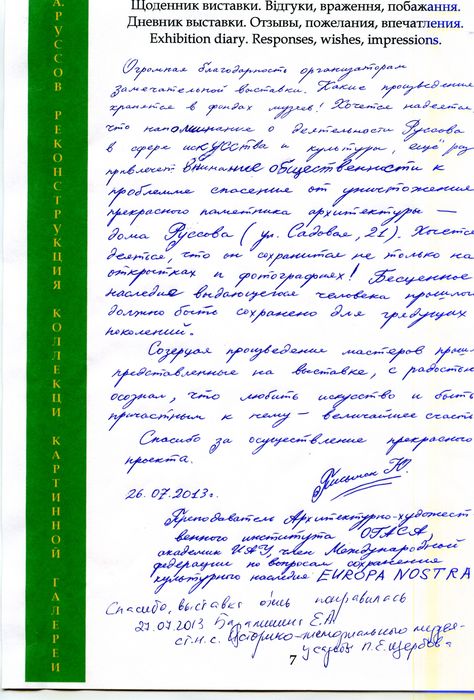 А.РУССОВ РЕКОНСТРУКЦИЯ КОЛЛЕКЦИ КАРТИННОЙ ГАЛЕРЕИ
Щоденник виставки. Відгуки, враження, побажання.
Дневник выставки. Отзывы, пожелания, впечатления.
Exhibition diary. Responses, wishes, impressions.
Огромная благодарность организаторам
замечательной выставки. Какие произведение
хранятся в фондах музеев! Хочется надеется
что напоминание о деятельности Руссова
в сфере искусства и культуры, ещё раз
привлечет внимание общественности к
проблемме спасение от уничтожение
прекрасного памятника архитектуры —
дома Руссова (ул. Садовая, 21). Хочется
деятся, что он сохранится не только на
открытках и фотографиях! Бесценное
наследие выдающегося человека прошлого
должно быть сохранено для грядущих
поколений.
Созерцая произведение мастеров прош-
представленные на выставке, с радостью
осознал, что любить искусство и быть
причастным к нему — величайшее счасть
Спасибо за осуществление прекрасного
проекта.
26.07.2013г.
Преподаватель Архитектурно-художест
венного института ОГАСА,
академик УАУ, член Международной
федерации по вопросам сохранение
культурного наследие EUROPA NOSTRA
Спасибо, выставка очень понравилась
27.07.2013 Е.А.
ст.н.с. Историко-мемориального музея-
усадьбы П.Е.Щербова
7